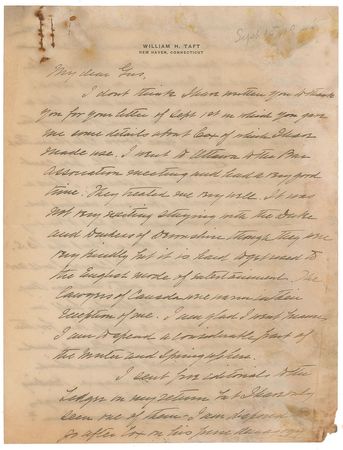 Sept 15
WILLIAM H. TAFT
NEW HAVEN, CONNECTICUT
My dear Gus,
I don't think I have written you to thank
you for your letter of Sept 1st in which you gave
me some details about Cox of which I have
made use. I went to Ottawa to the Bar
Association meeting and had a very good
time. They treated me very well. It was
not very exciting staying with the Duke
and Duchess of Devonshire though they are
very kindly but it is hard to get used to
the English mode of entertainment. The
lawyers of Canada were warm in their
reception of me. I am glad I went because
I am to spend a considerable part of
the Winter and Spring there.
I sent five editorials to the
Ledger on my return but I have only
seen one of them. I am disposed to
go after Cox on his